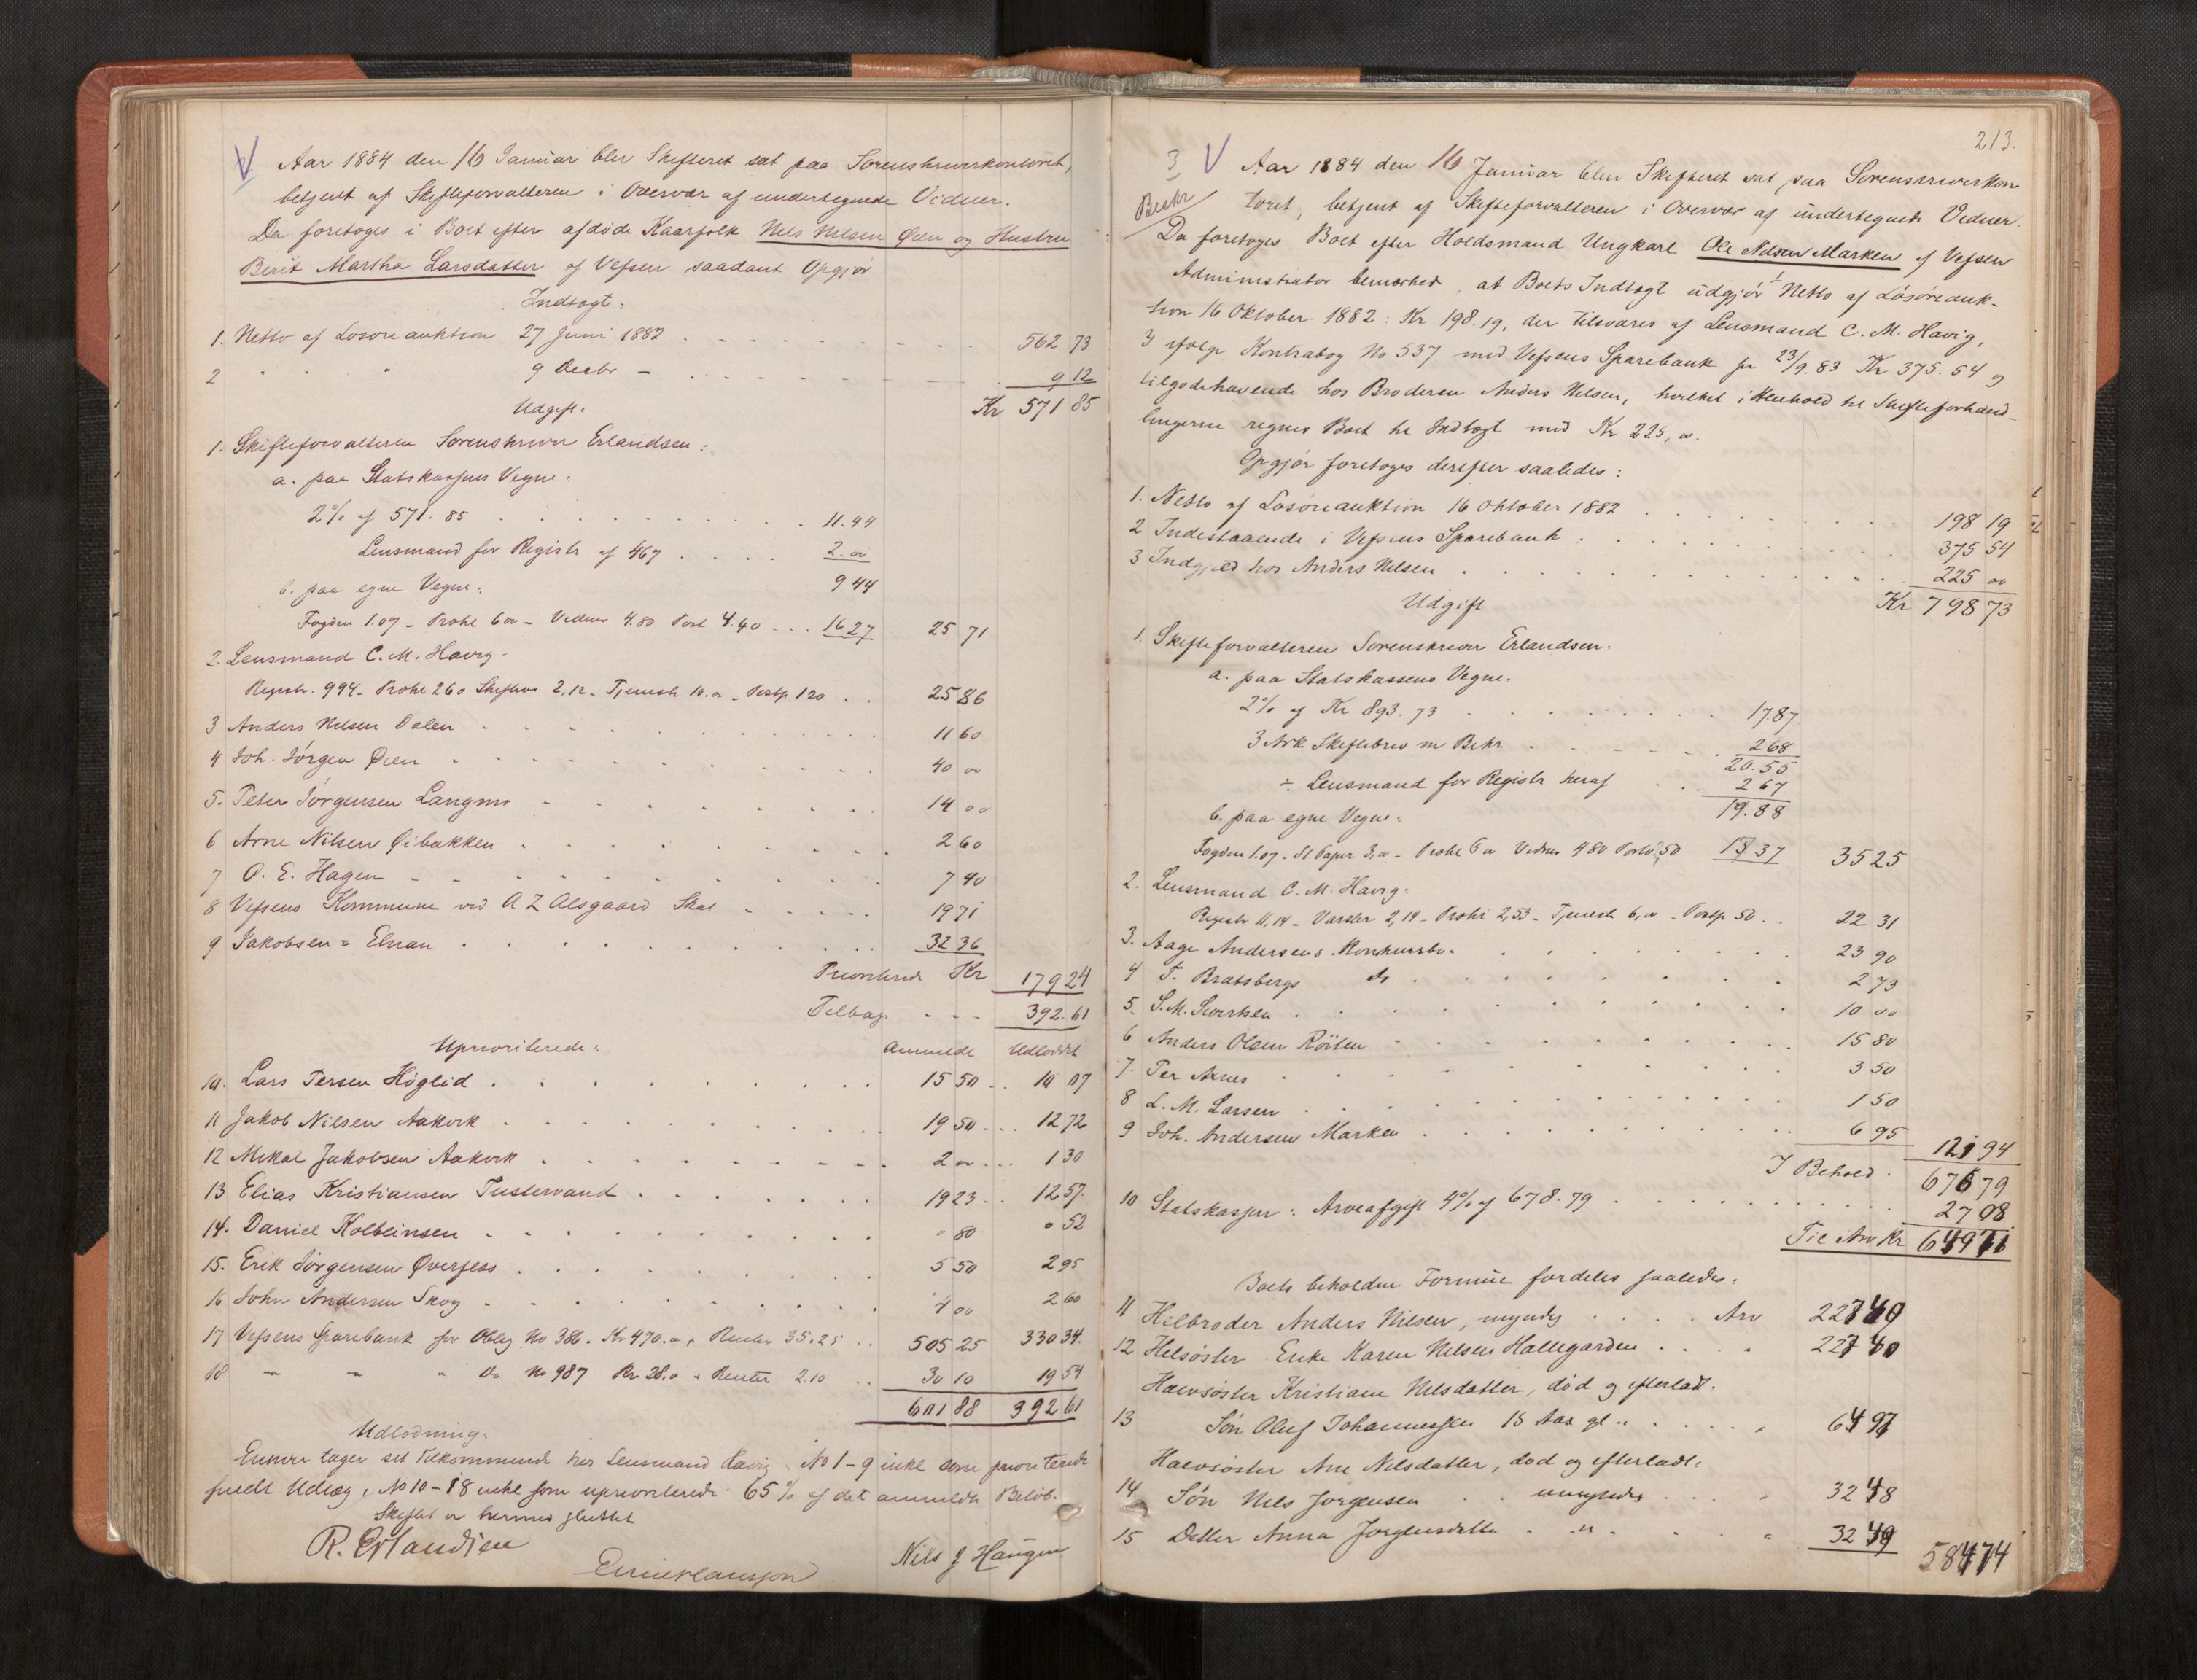 Aar 1884 den 16 Januar blev Skifteret sat paa Sorenskriverkontoret,
betjent af Skifteforvalteren i Overvær af undertegnede Vidner.
Da foretoges i Boet efter afdøde Kaarfolk Nils Nilsen Øien og Hustru
Berit Martha Larsdatter af Vefsen saadant Opgjør
Indtægt:
1. Netto af Løsøreauktion 27 Juni 1882 562 73
2 " " " 9 Decbr – 9 12
Udgift: Kr 571 85
1. Skifteforvalteren Sorenskriver Erlandsen:
a. paa Statskassens Vegne:
2% af 571.85 11.44
Lensmand for Registr af 467 2.00
b. paa egne Vegne: 9 44
Fogden 1.07 – Prokl 6 00 – Vidner 4.80 Port 4.40 16 27 25 71
2. Lensmand C. M. Havig
Registr. 994 – Prokl 260 Skiftevs 2,12 – Tjeneste 10.00 – Postp 120 25 86
3 Anders Nilsen Dalen 11 60
4 Joh. Jørgen Øien 40 00
5. Peter Jørgensen Langmo 14 00
6 Arne Nilsen Øibakken 2 60
7 O. E. Hagen 7 40
8 Vefsens Kommune ved A Z Alsgaard Skat 19 71
9 Jakobsen & Elnan 32 36
Prioriterede Kr 179 24
Tilbage 392.61
Uprioriterede: Anmeldt Udloddet
10. Lars Persen Høglid 15 50 10 07
11 Jakob Nilsen Aakvik 19 50 12 72
12 Mikal Jakobsen Aakvik 2 00 1 30
13 Elias Kristiansen Tustervand 19 23 12 57
14. Daniel Kolbeinsen " 80 " 52
15. Erik Jørgensen Øverfos 5 50 2 95
16 John Andersen Skog 4 00 2 60
17 Vefsens Sparebank for Oblig No 386. Kr 470.00, Renter 35.25 505 25 330 34
18 – – " Do No 987 Kr 28.00 & Renter 2.10 30 10 19 54
601 88 392 61
Udlodning:
Enhver tager sit Tilkommende hos Lensmand Havig. No 1–9 inkl som prioriterede
fuldt Udlæg, No 10–18 inkl som uprioriterede 65% af det anmeldte Beløb.
Skiftet er hermed sluttet
R. Erlandsen
Nils J Haugen
213.
3
Beskr
Aar 1884 den 16 Januar blev Skifteret sat paa Sorenskriverkon
toret, betjent af Skifteforvalteren i Overvær af undertegnede Vidner.
Da foretoges Boet efter Holdsmand Ungkarl Ole Nilsen Marken af Vefsen
Administrator bemærked, at Boets Indtægt udgjør 1 Netto af Løsøreauk-
tion 16 Oktober 1882: Kr 198.19, der tilsvares af Lensmand C. M. Havig,
3 ifølge Kontrabog No 537 med Vefsens Sparebank pr 23/9.83 Kr 375.54 og
tilgodehavende hos Broderen Anders Nilsen, hvilket i Henhold til Skifteforhand-
lingerne regnes Boet til Indtægt med Kr 225,00.
Opgjør foretoges derefter saaledes:
1. Netto af Løsøreauktion 16 Oktober 1882 198 19
2 Indestaaende i Vefsens Sparebank 375 54
3 Indgjæld hos Anders Nilsen 225 00
Udgift Kr 798 73
1. Skifteforvalteren Sorenskriver Erlandsen.
a. paa Statskassens Vegne.
2% af Kr 893.73 17.87
3 Ark Skiftebrev m Bekr 2 68
20.55
÷ Lensmand for Registr heraf 2 67
b. paa egne Vegne: 19.88
Fogden 1.07 – St Papir 3,00 – Prokl 6 00 Vidner 4 80 Porto ,50 15 37 35 25
2. Lensmand C. M. Havig:
Registr 11,14 – Varsler 2,14 – Prokl 2,53 – Tjeneste 6,00 – Postp 50 22 31
3. Aage Andersens Konkursbo 23 90
4 F. Bratsbergs do 2 73
5. S. M. Sivertsen 10 00
6 Anders Olsen Røiten 15 80
7. Per Aanes 3 50
8 L. M. Larsen 1 50
9 Joh. Andersen Marken 6 95 121 94
I Behold 676 79
10 Statskassen: Arveafgift 4% af 678.79 27 08
Til Arv Kr 649 71
Boets beholdne Formue fordeles saaledes:
11 Helbroder Anders Nilsen, myndig Arv 227 40
12 Helsøster Enke Karen Nilsen Hallegarden " 227 40
Halvsøster Kristiane Nilsdatter, død og efterladt:
13 Søn Oluf Johannessen 15 Aar gl " 64 97
Halvsøster Ane Nilsdatter, død og efterladt:
14 Søn Nils Jørgensen umyndig 32 48
15 Datter Anna Jørgensdatter " 32 49 584 74